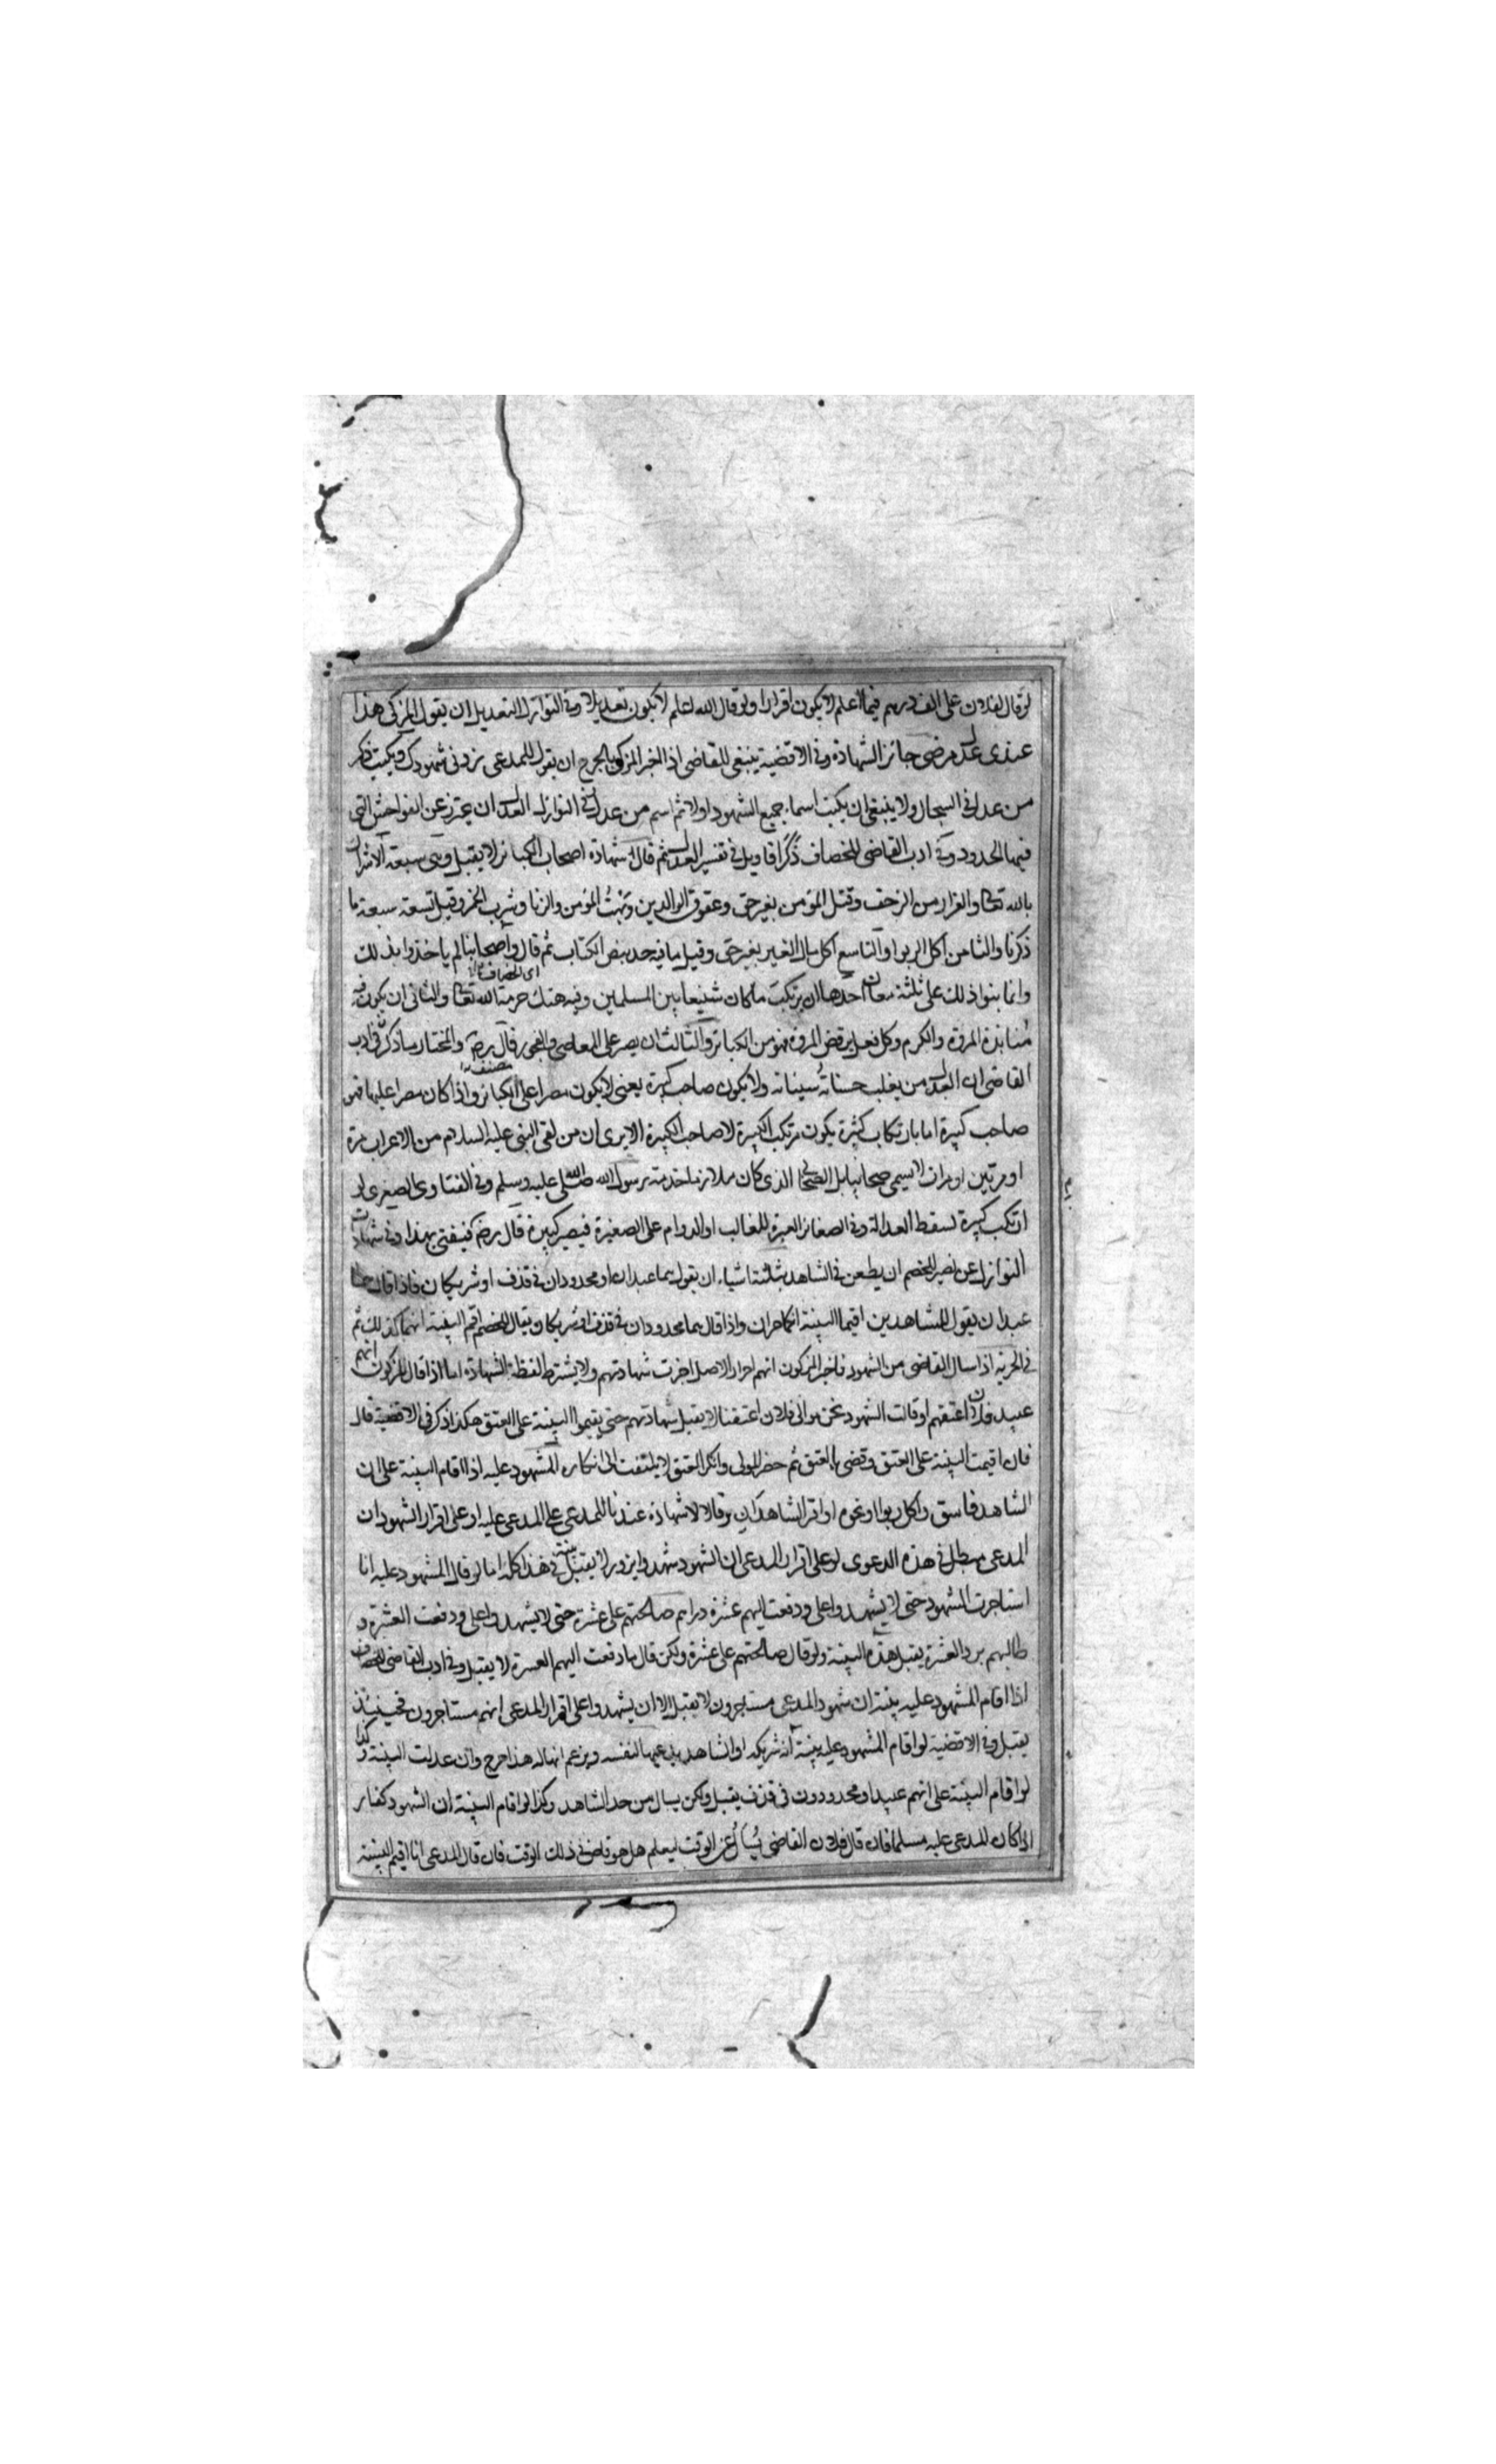 لو قال لفلان على الف درهم فيما اعلم لا يكون اقرارا ولو قال الله اعلم لا يكون تعديلا وفى النوازل التعديل ان يقول المزكى هذا
عندى عدل مرضى جائز الشهادة وفى الاقضية ينبغى للقاضى اذا اخبر المزكى بالجرح ان يقول للمدعى زدنى شهودك ويكتب ذكر
من عدل فى السجال ولا ينبغى ان يكتب اسماء جميع الشهود اولا ثم اسم من عدل فى النوازل العدل ان يحترز عن الفواحش التى
فيها الحدود وفى ادب القاضى للخصاف ذكر اقاويل فى تفسير العدل ثم قال شهادة اصحاب الكبائر لا يقبل وهى سبعة الاشراك
بالله تعالى والفرار من الزحف وقتل المؤمن بغير حق وعقوق الوالدين وبهت المؤمن والزنا وشرب الخمر وقيل تسعة سبعة ما
ذكرنا والثامن اكل الربوا والتاسع اكل مال الغير بغير حق وقيل ما فيه حد بنص الكتاب ثم قال واصحابنا لم ياخذوا بذلك
اى الخصاف
وانما بنوا ذلك على ثلثة معان احدها ان يرتكب ما كان شنيعا بين المسلمين وفيه هتك حرمة الله تعالى والثانى ان يكون فيه
منابذة المروة والكرم وكل فعل يرفض المروة فهو من الكبائر والثالث ان يصر على المعاصى والفجور قال رضه والمختار ما ذكر فى ادب
مصنف
القاضى ان العدل من يغلب حسناته سيئاته ولا يكون صاحب كبيرة يعنى لا يكون مصرا على الكبائر واذا كان مصرا عليها فهو
صاحب كبيرة اما بارتكاب كبيرة يكون مرتكب الكبيرة لا صاحب الكبيرة الا يرى ان من لقى النبى عليه السلام من الاعراب مرة
او مرتين او مرات لا يسمى صحابيا بل الصحابى الذى كان ملازما خدمة رسول الله صلى الله عليه وسلم وفى الفتاوى الصغرى لو
ارتكب كبيرة تسقط العدالة وفى الصغائر العبرة للغالب او الدوام على الصغيرة فيصير كبيرة قال رضه فيفتى بهذا وفى شهادات
النوازل عن نصير للخصم ان يطعن فى الشاهد بثلثة اشياء ان يقول هما عبدان او محدودان فى قذف او شريكان فاذا قال هما
عبدان يقول للشاهدين اقيما البينة انكما حران واذا قال هما محدودان فى قذف او شريكان ويقال للخصم اقم البينة انهما كذلك ثم
فى الحرية اذا سال القاضى من الشهود فاخبر المزكون انهم احرار الاصل اجزت شهادتهم ولا يشترط لفظة الشهادة اما اذا قال المزكون انهم
عبيد فلان اعتقهم او قالت الشهود نحن موالى فلان اعتقنا لا يقبل شهادتهم حتى يقيموا البينة على العتق هكذا ذكر فى الاقضية قال
فان اقيمت البينة على العتق وقضى بالعتق ثم حضر المولى وانكر العتق لا يلتفت الى انكاره المشهود عليه اذا اقام البينة على ان
الشاهد فاسق واكل ربوا ونحوه او اقر الشاهدان وقالا لا شهادة عندنا للمدعى على المدعى عليه او على اقرار الشهود ان
المدعى مبطل فى هذه الدعوى او على اقرار المدعى ان الشهود شهدوا بزور لا يقبل بينته فى هذا كله اما لو قال المشهود عليه انا
استاجرت الشهود حتى لا يشهدوا على ودفعت اليهم عشرة دراهم صالحتهم على عشرة حتى لا يشهدوا على ودفعت العشرة و
طالبهم برد العشرة يقبل هذه البينة ولو قال صالحتهم على عشرة ولكن قال ما دفعت اليهم العشرة لا يقبل وفى ادب القاضى للخصاف
اذا اقام المشهود عليه بينة ان شهود المدعى مستاجرون لا يقبل الا ان يشهدوا على اقرار المدعى انهم مستاجرون فحينئذ
يقبل وفى الاقضية لو اقام المشهود عليه بينة انه شريكه او الشاهد يدعيها لنفسه ويزعم انها له هذا جرح وان عدلت البينة وكذا
لو اقام البينة على انهم عبيد او محدودون فى قذف يقبل ولكن يسال من حد الشاهد وكذا لو اقام البينة ان الشهود كفار
اذا كان المدعى عليه مسلما فان قال فلان القاضى يسال عن الوقت ليعلم هل هو قاض فى ذلك الوقت فان قال المدعى انا اقيم البينة